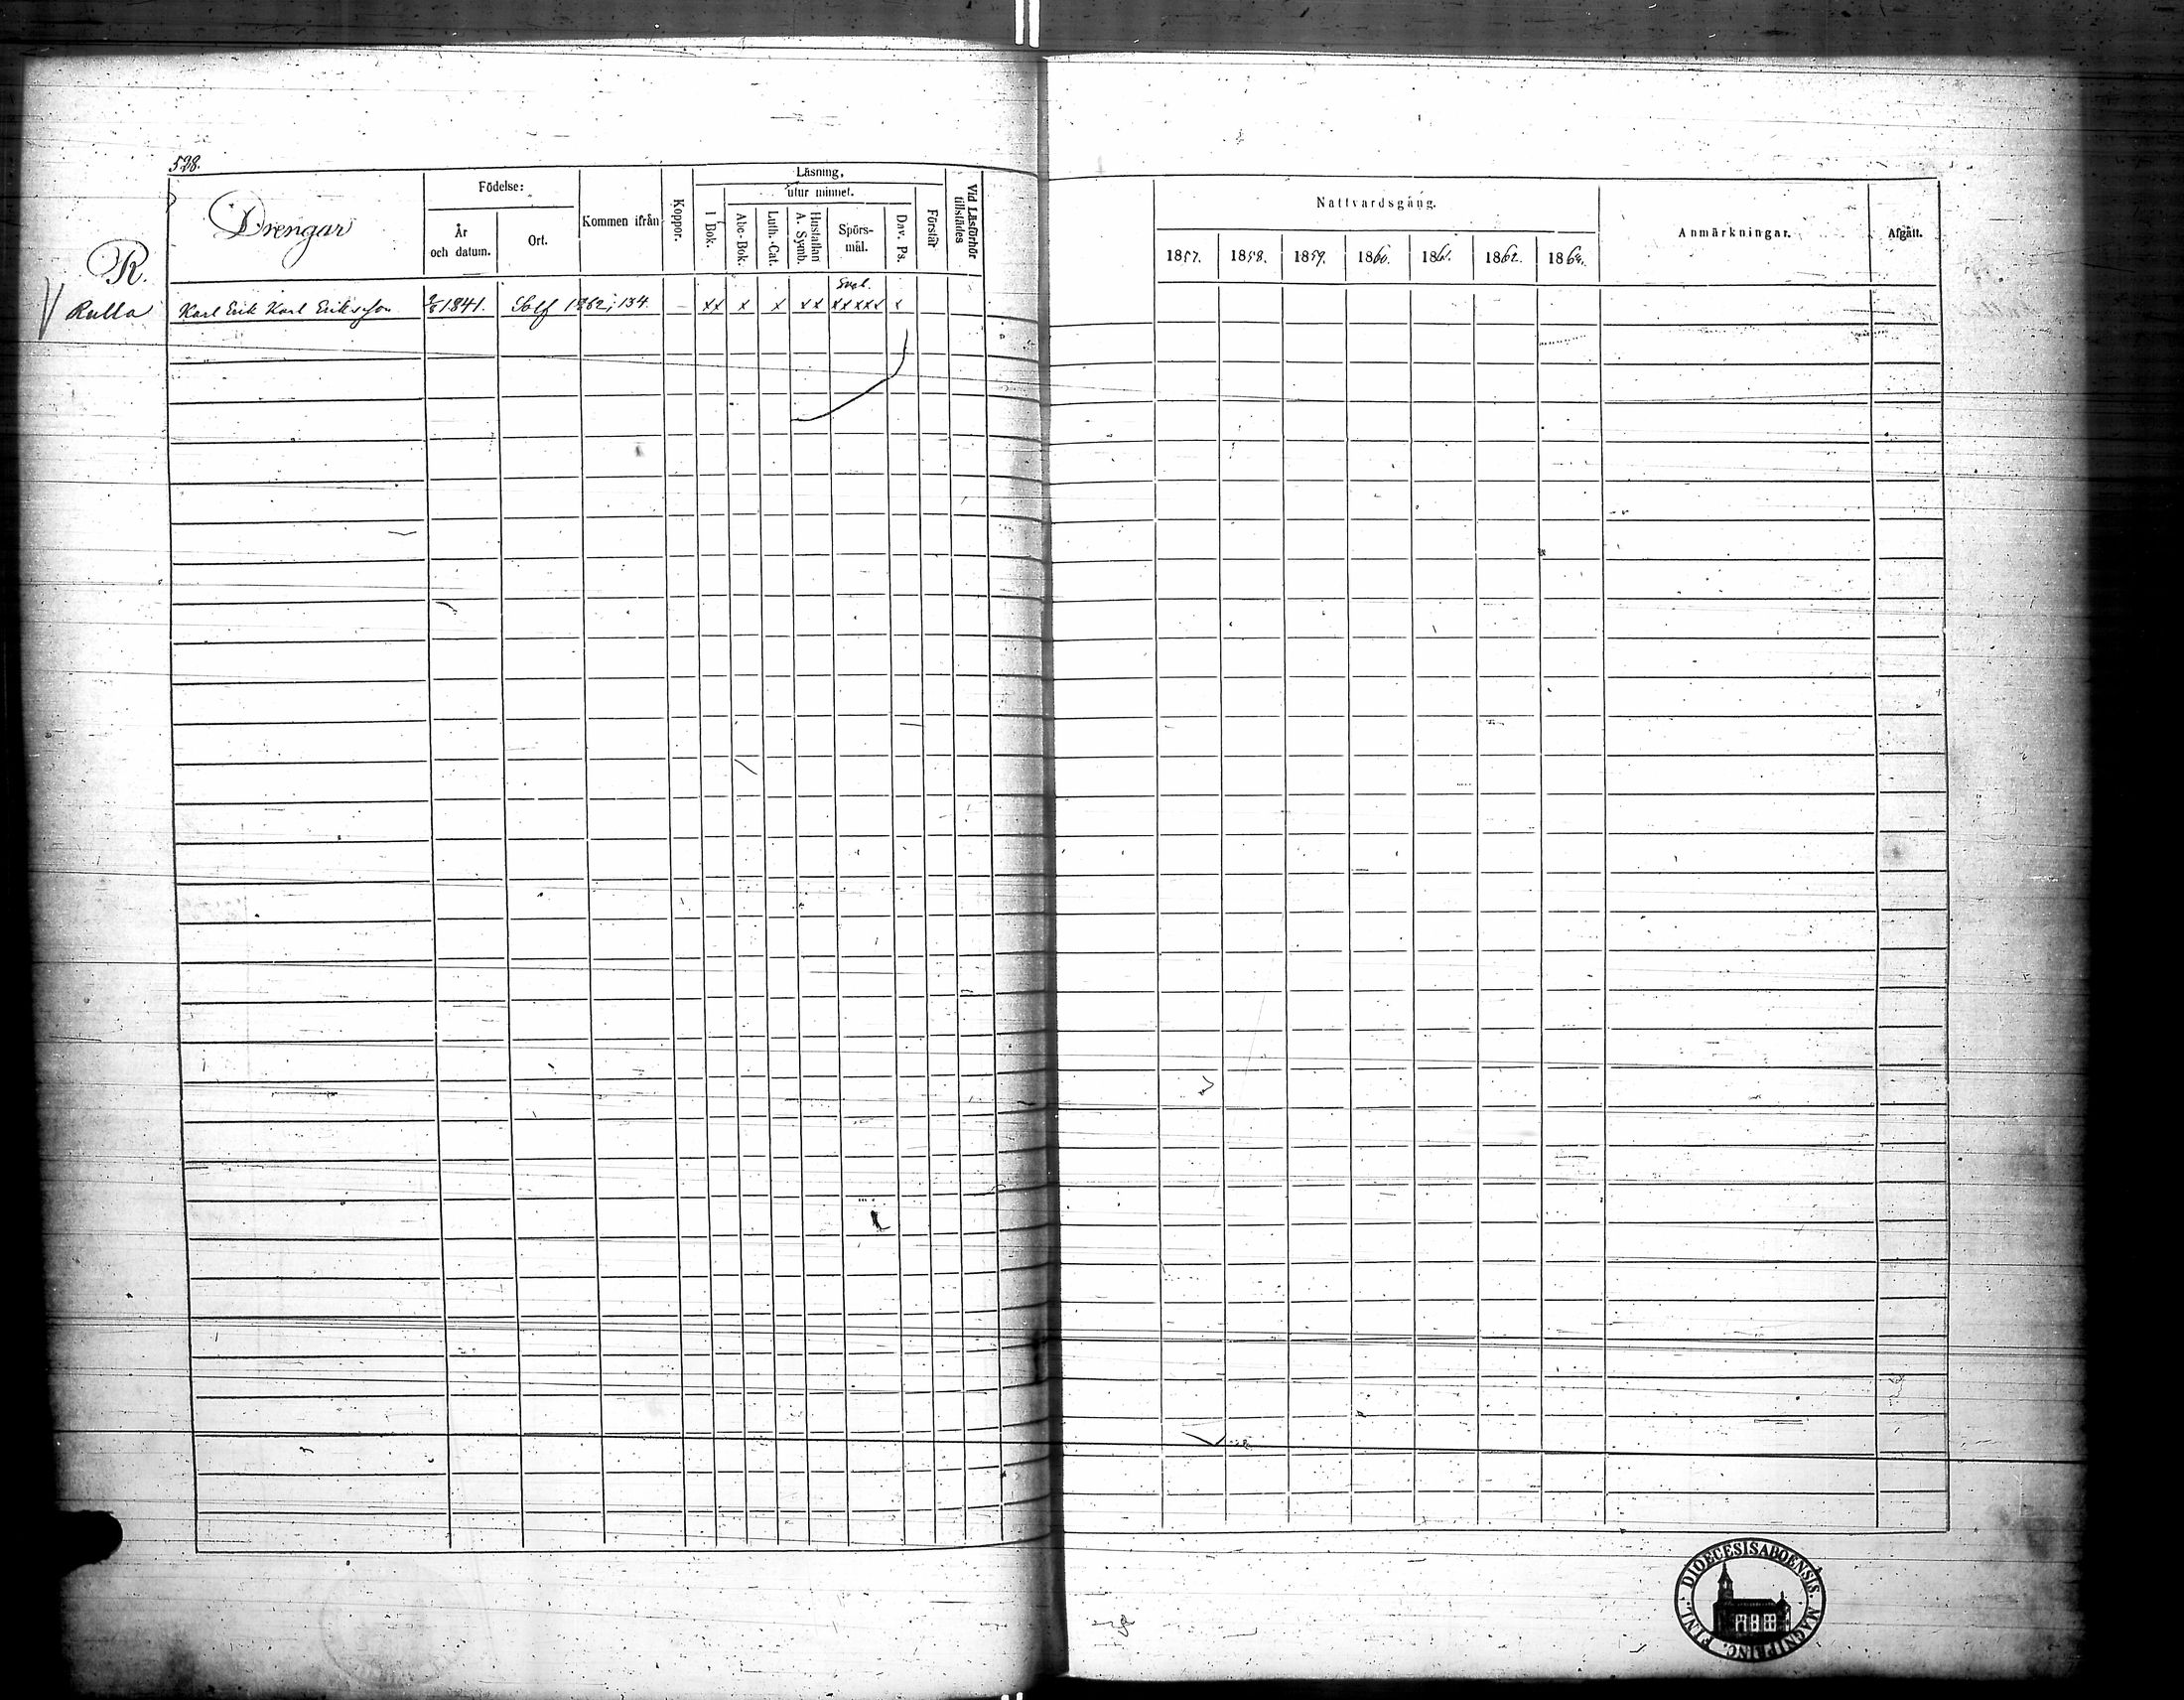 528.
Drengar
Födelse:
År och datum.
Ort.
Kommen ifrån
Koppor.
Läsning,
I Bok.
utur minnet.
Abc-Bok.
Luth.-Cat.
Hustaflan A. Symb.
Spörs-mål.
Dav. Ps.
Förstår
Vid Läsförhör tillstädes
Nattvardsgång.
1857.
1858.
1859.
1860.
1861.
1862.
Anmärkningar.
Afgått.
R.
Rulla
Karl Erik Karl Eriksson 1841. Solf 1862; 134. — xx x x xx xxxxx x
DIOECESIS ABOENSIS MAGNI PRINC. FINL.